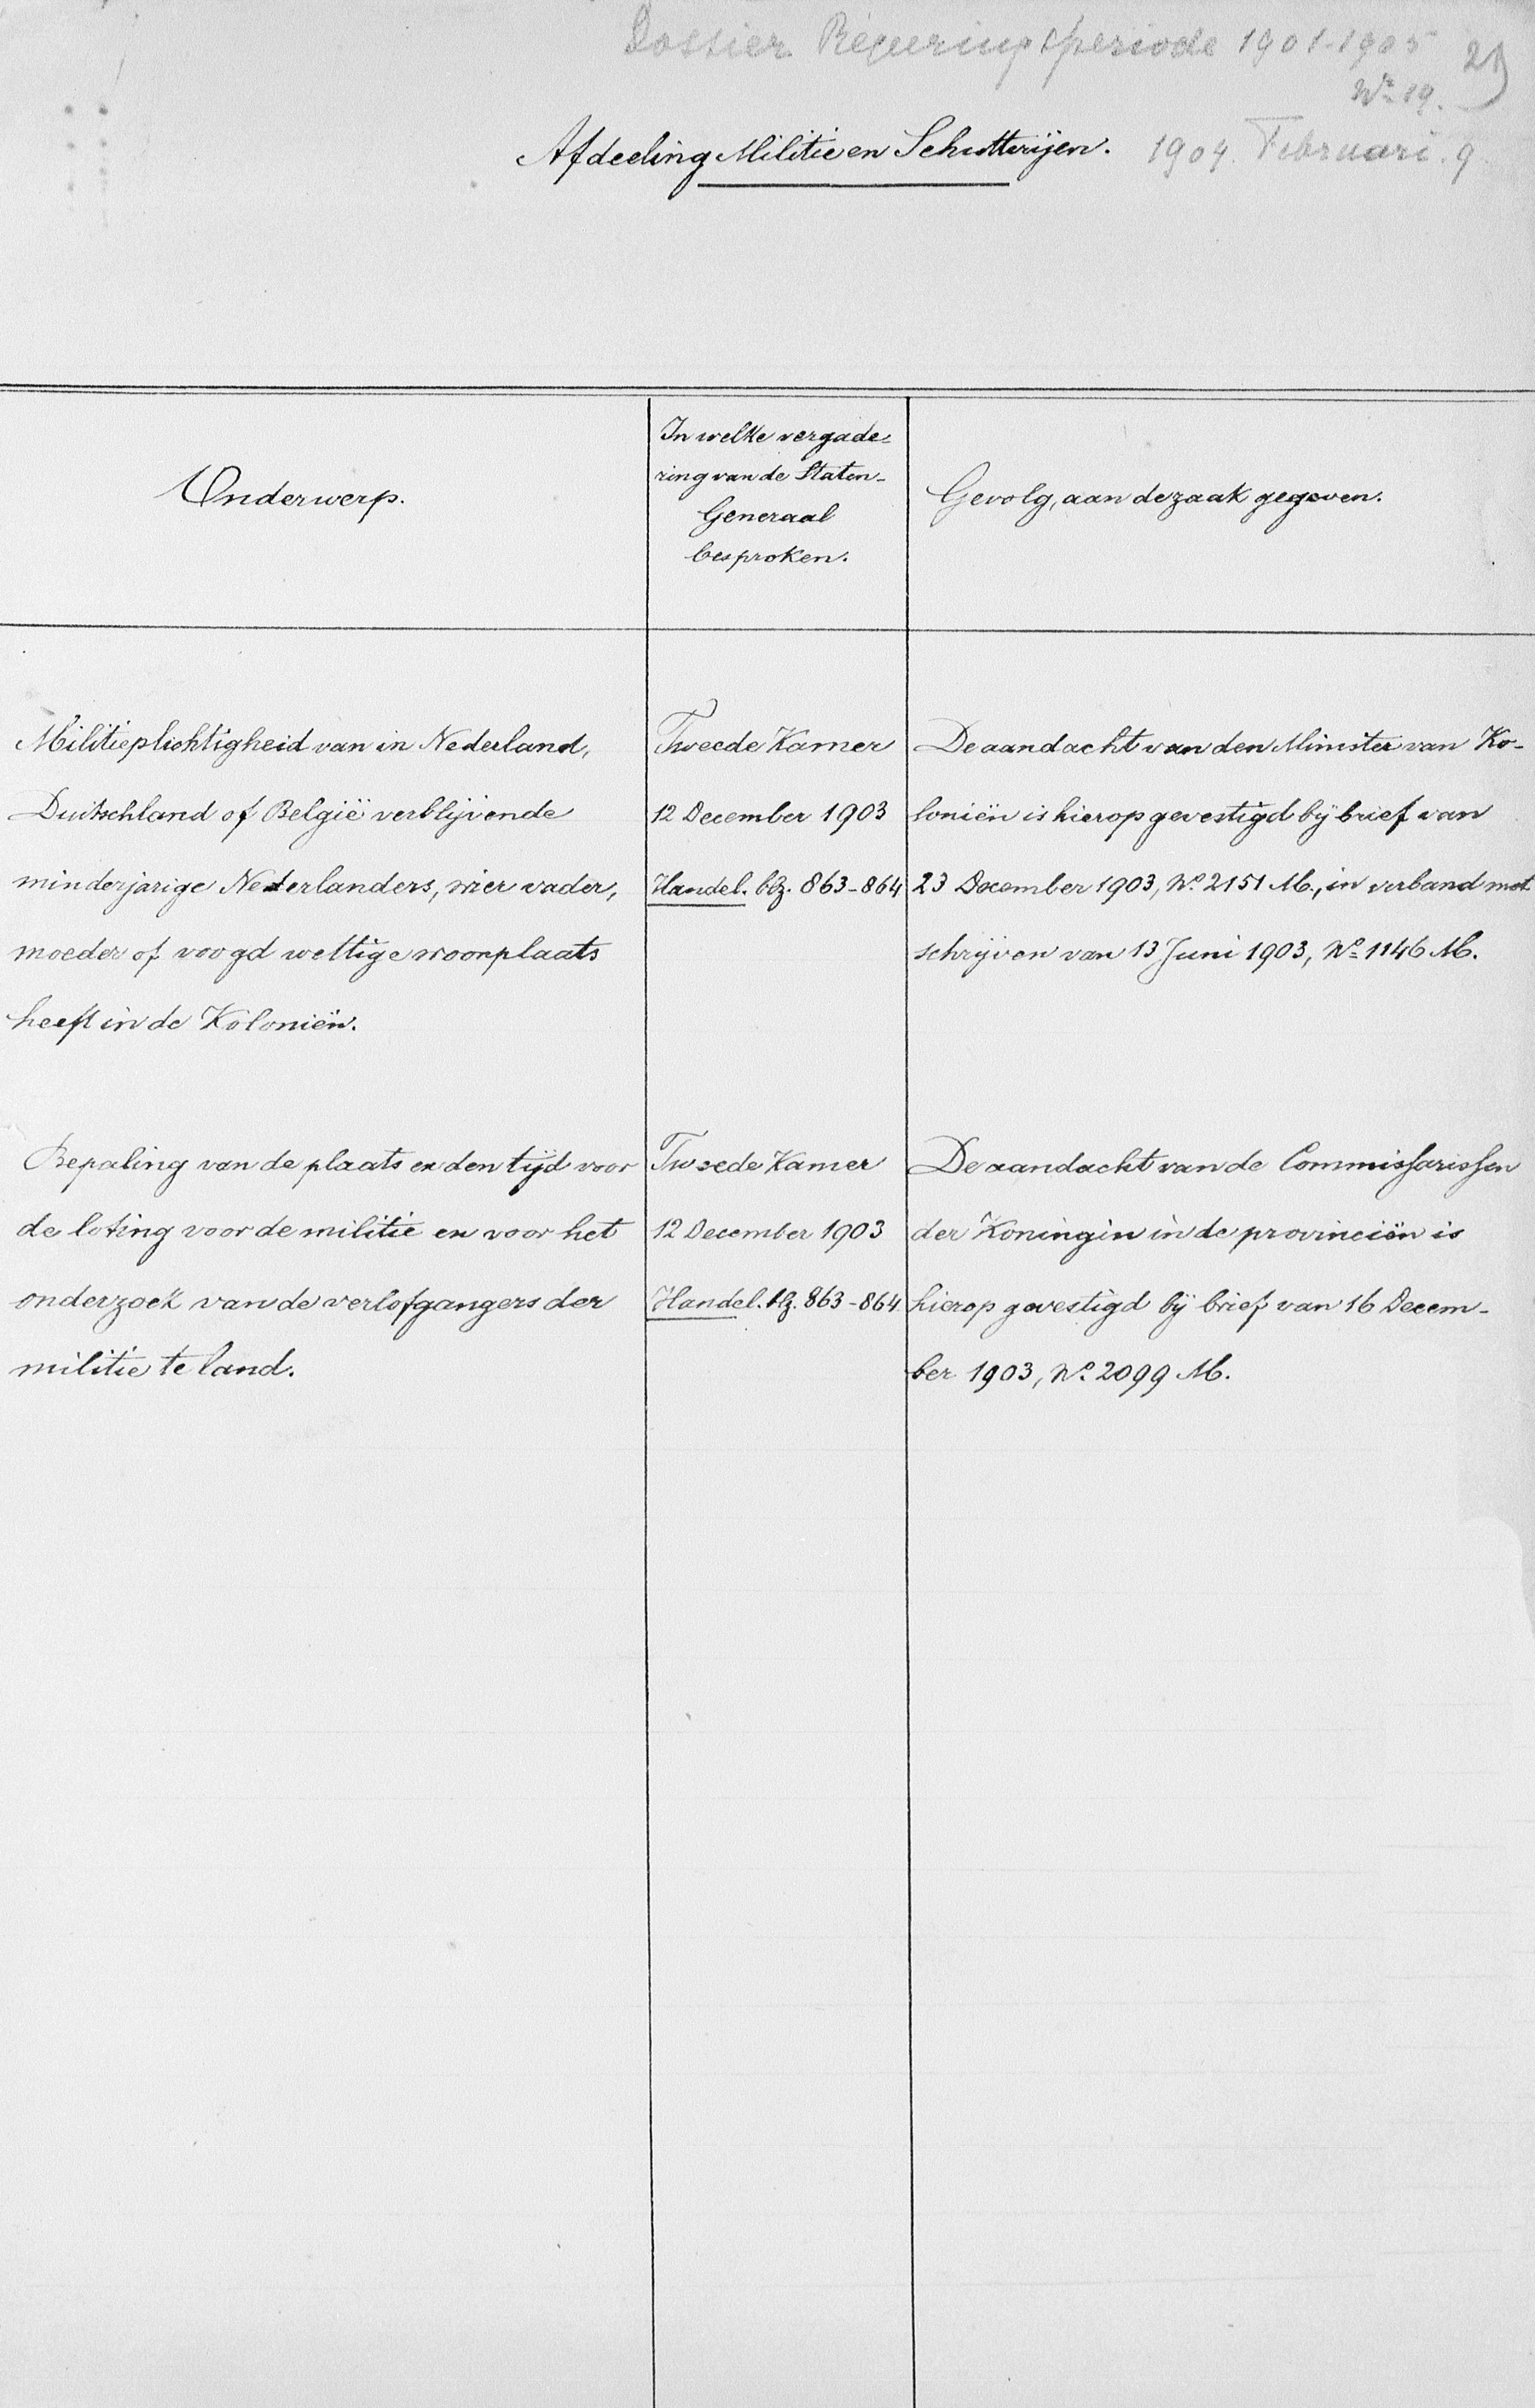 Dossier Regeeringsperiode 1901-1905
29
No 19.
Afdeeling Militie en Schutterijen. 1904. Februari. 9
Onderwerp.
In welke vergade-
ring van de Staten-
Generaal
besproken.
Gevolg, aan de zaak gegeven.
Militieplichtigheid van in Nederland,
Duitschland of België verblijvende
minderjarige Nederlanders, wier vader,
moeder of voogd wettige woonplaats
heeft in de Koloniën.
Tweede Kamer
12 December 1903
Handel. blz. 863-864
De aandacht van den Minister van Ko-
loniën is hierop gevestigd bij brief van
23 December 1903, No. 2151 M., in verband met
schrijven van 13 Juni 1903, No. 1146 M.
Bepaling van de plaats en den tijd voor
de loting voor de militie en voor het
onderzoek van de verlofgangers der
militie te land.
Tweede Kamer
12 December 1903
Handel. blz. 863-864.
De aandacht van de Commissarissen
der Koningin in de provinciën is
hierop gevestigd bij brief van 16 Decem-
ber 1903, No. 2099 M.